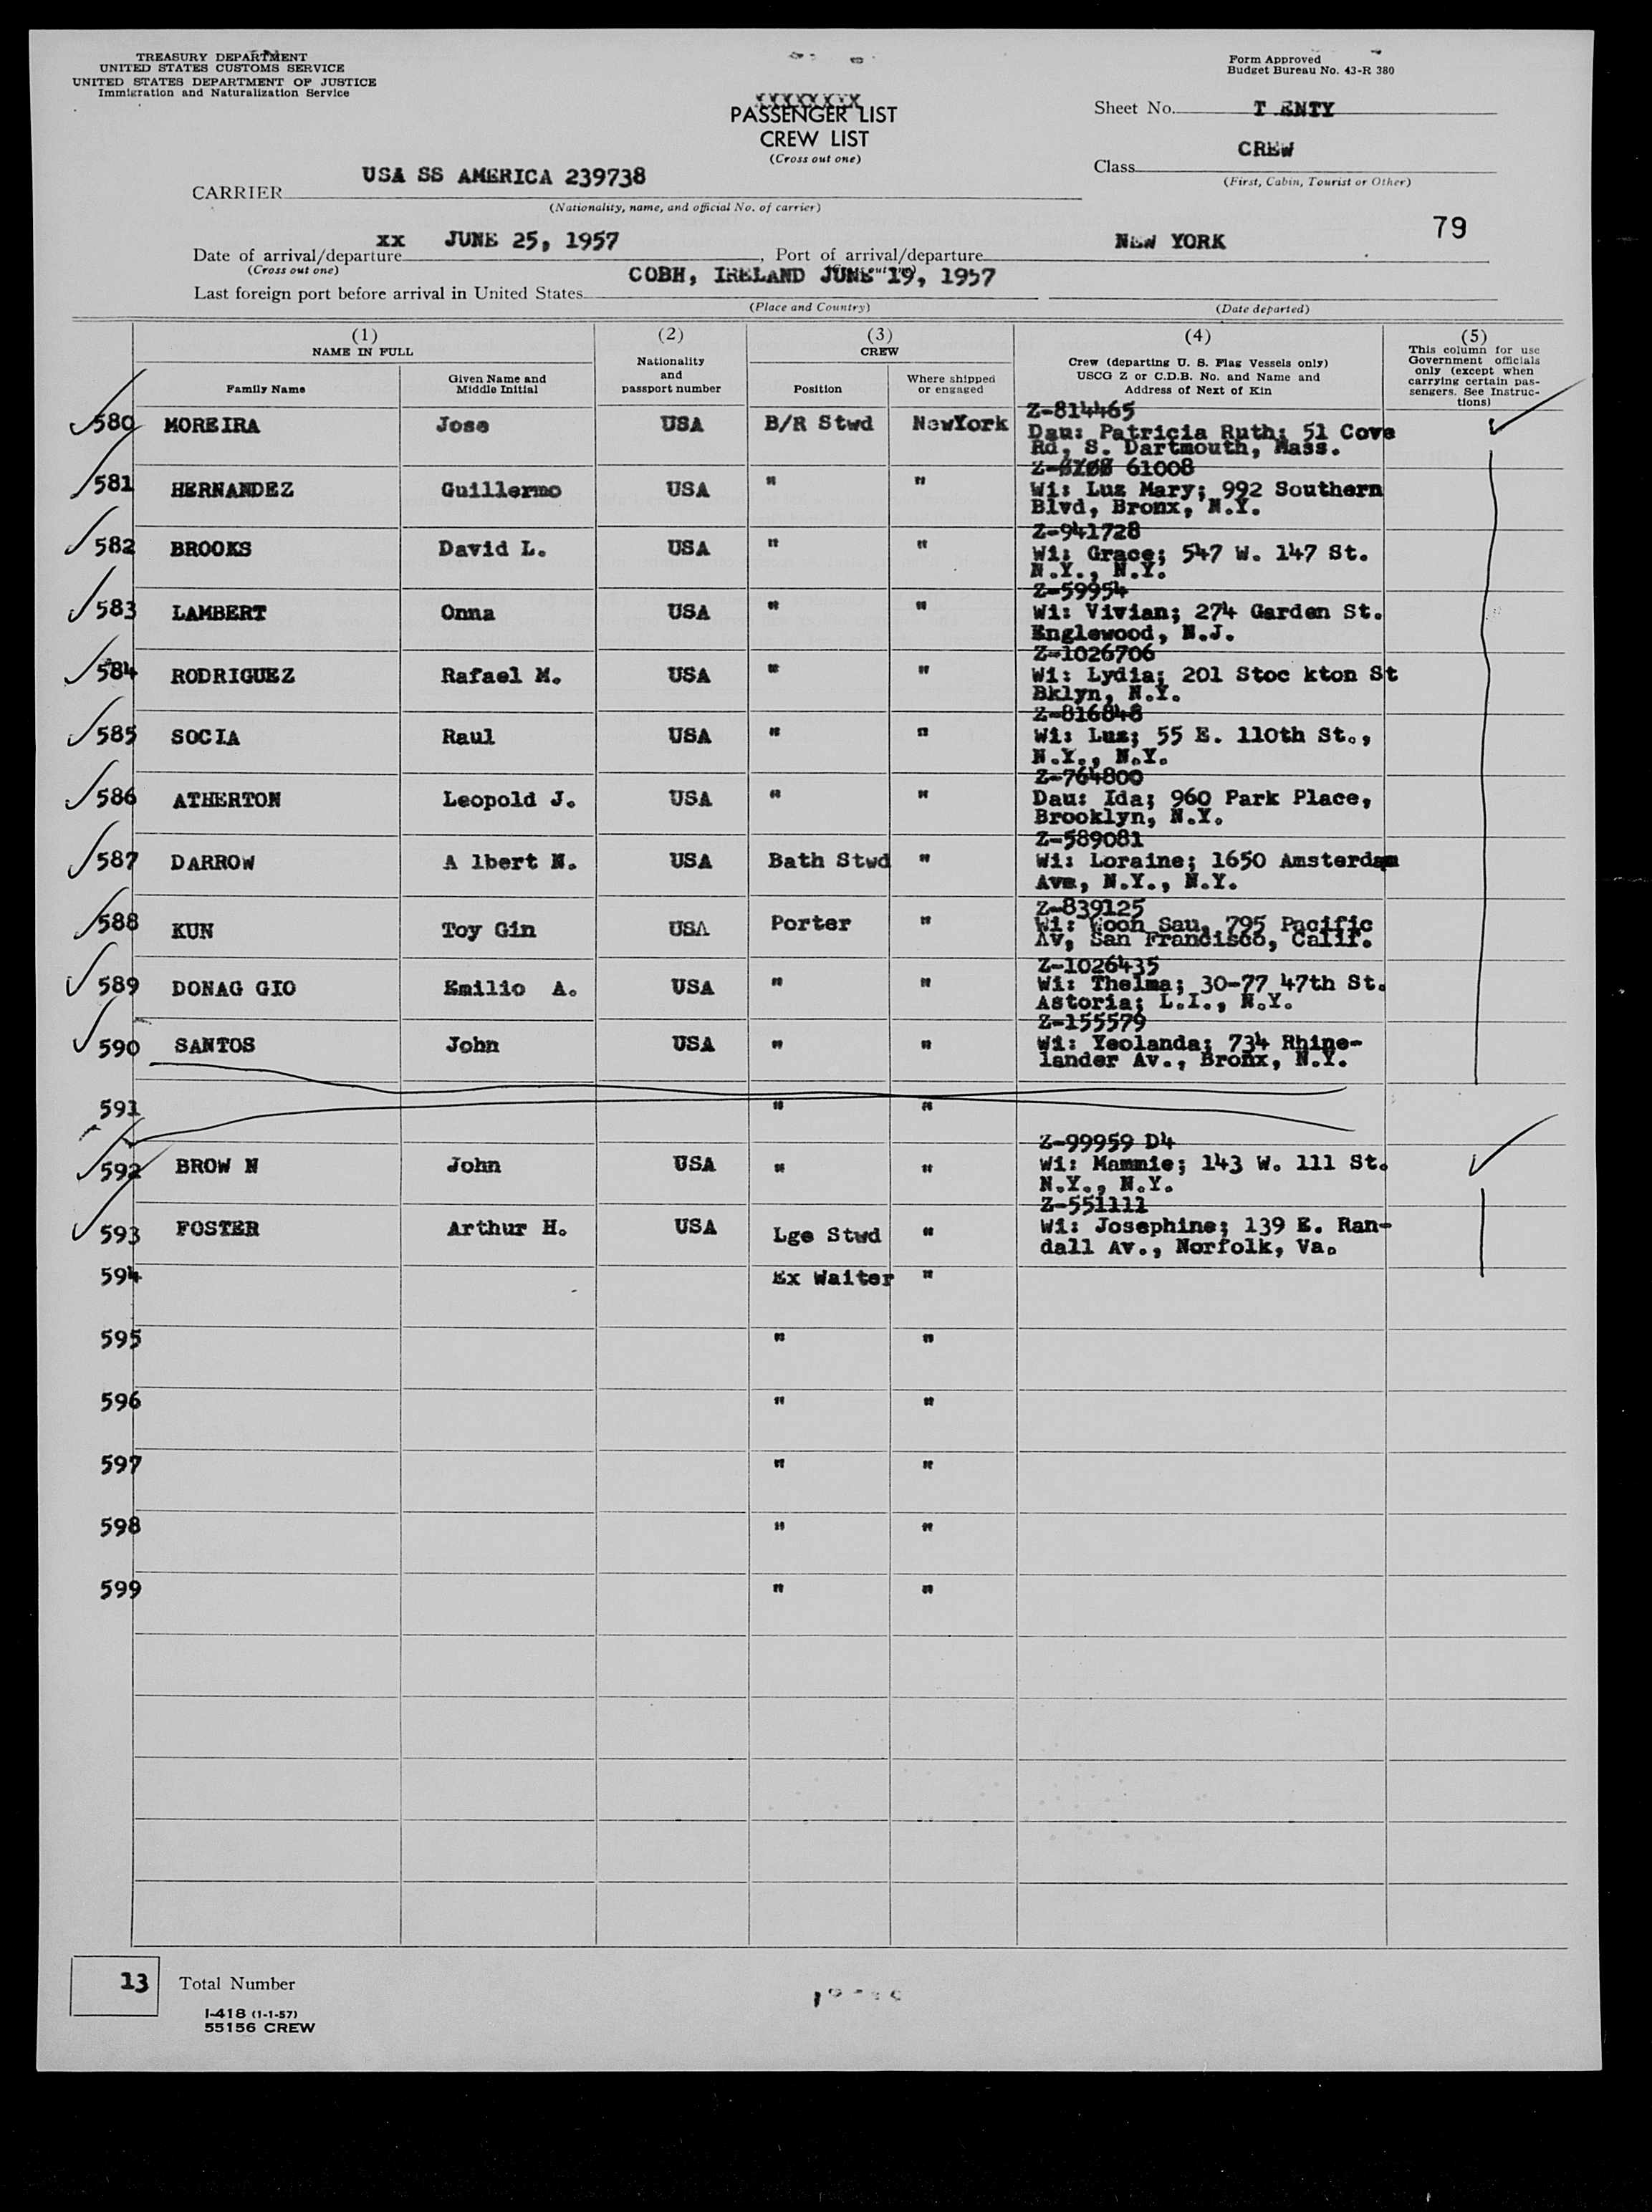 TREASURY DEPARTMENT
UNITED STATES CUSTOMS SERVICE
UNITED STATES DEPARTMENT OF JUSTICE
Immigration and Naturalization Service
Form Approved
Budget Bureau No. 43-R 380
XXXXXXX
PASSENGER LIST
CREW LIST
(Cross out one)
Sheet No. T ENTY
Class CREW
(First, Cabin, Tourist or Other)
CARRIER USA SS AMERICA 239738
(Nationality, name, and official No. of carrier)
79
Date of arrival/departure xx JUNE 25, 1957, Port of arrival/departure NEW YORK
(Cross out one)
Last foreign port before arrival in United States COBH, IRELAND JUNE 19, 1957
(Place and Country) (Date departed)
(1) NAME IN FULL
Family Name
Given Name and Middle Initial
(2) Nationality and passport number
(3) CREW
Position
Where shipped or engaged
(4) Crew (departing U. S. Flag Vessels only) USCG Z or C.D.B. No. and Name and Address of Next of Kin
(5) This column for use Government officials only (except when carrying certain passengers. See Instructions)
Z-814465
580 MOREIRA Jose USA B/R Stwd NewYork Dau: Patricia Ruth; 51 Cove
Rd, S. Dartmouth, Mass.
Z- 61008
581 HERNANDEZ Guillermo USA " " Wi: Luz Mary; 992 Southern
Blvd, Bronx, N.Y.
Z-941728
582 BROOKS David L. USA " " Wi: Grace; 547 W. 147 St.
N.Y., N.Y.
Z-59954
583 LAMBERT Onna USA " " Wi: Vivian; 274 Garden St.
Englewood, N.J.
Z-1026706
584 RODRIGUEZ Rafael M. USA " " Wi: Lydia; 201 Stoc kton St
Bklyn, N.Y.
Z-816848
585 SOCIA Raul USA " " Wi: Luz; 55 E. 110th St.,
N.Y., N.Y.
Z-764800
586 ATHERTON Leopold J. USA " " Dau: Ida; 960 Park Place,
Brooklyn, N.Y.
Z-589081
587 DARROW A lbert N. USA Bath Stwd " Wi: Loraine; 1650 Amsterdam
Ave, N.Y., N.Y.
Z-839125
588 KUN Toy Gin USA Porter " Wi: Woon Sau, 795 Pacific
Av, San Francisco, Calif.
Z-1026435
589 DONAG GIO Emilio A. USA " " Wi: Thelma; 30-77 47th St.
Astoria; L.I., N.Y.
Z-155579
590 SANTOS John USA " " Wi: Yeolanda; 734 Rhine-
lander Av., Bronx, N.Y.
591 " "
Z-99959 D4
592 BROW N John USA " " Wi: Mammie; 143 W. 111 St.
N.Y., N.Y.
Z-551111
593 FOSTER Arthur H. USA Lge Stwd " Wi: Josephine; 139 E. Ran-
dall Av., Norfolk, Va.
594 Ex Waiter "
595 " "
596 " "
597 " "
598 " "
599 " "
13 Total Number
I-418 (1-1-57)
55156 CREW